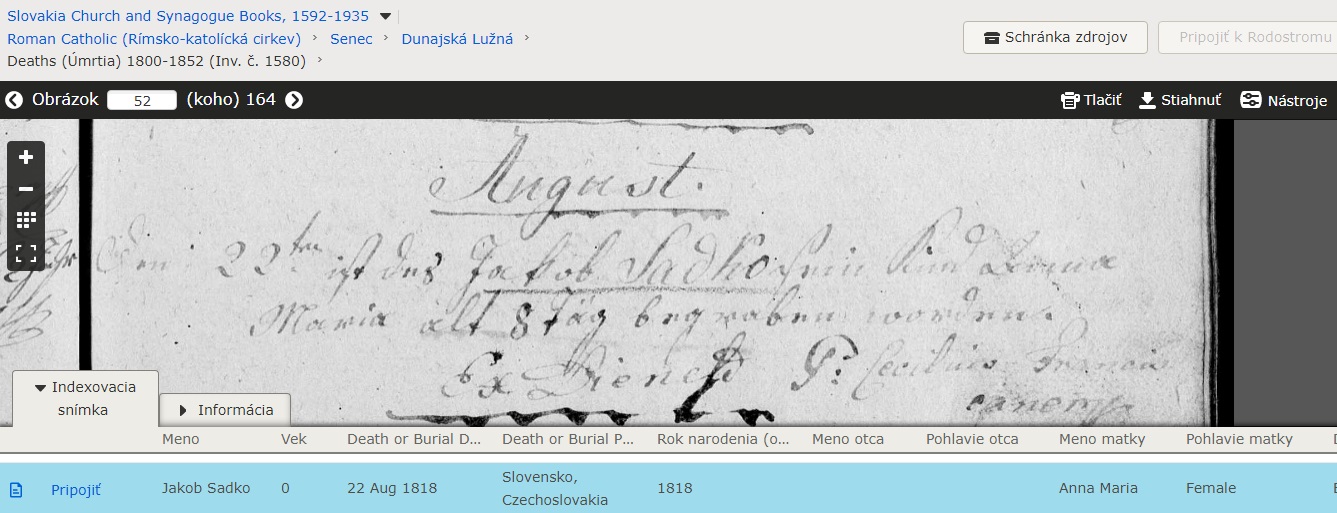 Slovakia Church and Synagogue Books, 1592-1935
Roman Catholic (Rímsko-katolícká cirkev) › Senec › Dunajská Lužná ›
Deaths (Úmrtia) 1800-1852 (Inv. č. 1580) ›
Schránka zdrojov
Pripojiť k Rodostromu
Obrázok 52 (koho) 164
Tlačiť
Stiahnuť
Nástroje
August.
Den 22ten ist des Jakob Sadko sein Kind
Maria alt 8 Täg begraben worden.
P: Cecilius
Indexovacia
snímka
Informácia
Meno Vek Death or Burial D... Death or Burial P... Rok narodenia (o... Meno otca Pohlavie otca Meno matky Pohlavie matky
Pripojiť Jakob Sadko 0 22 Aug 1818 Slovensko, Czechoslovakia 1818 Anna Maria Female